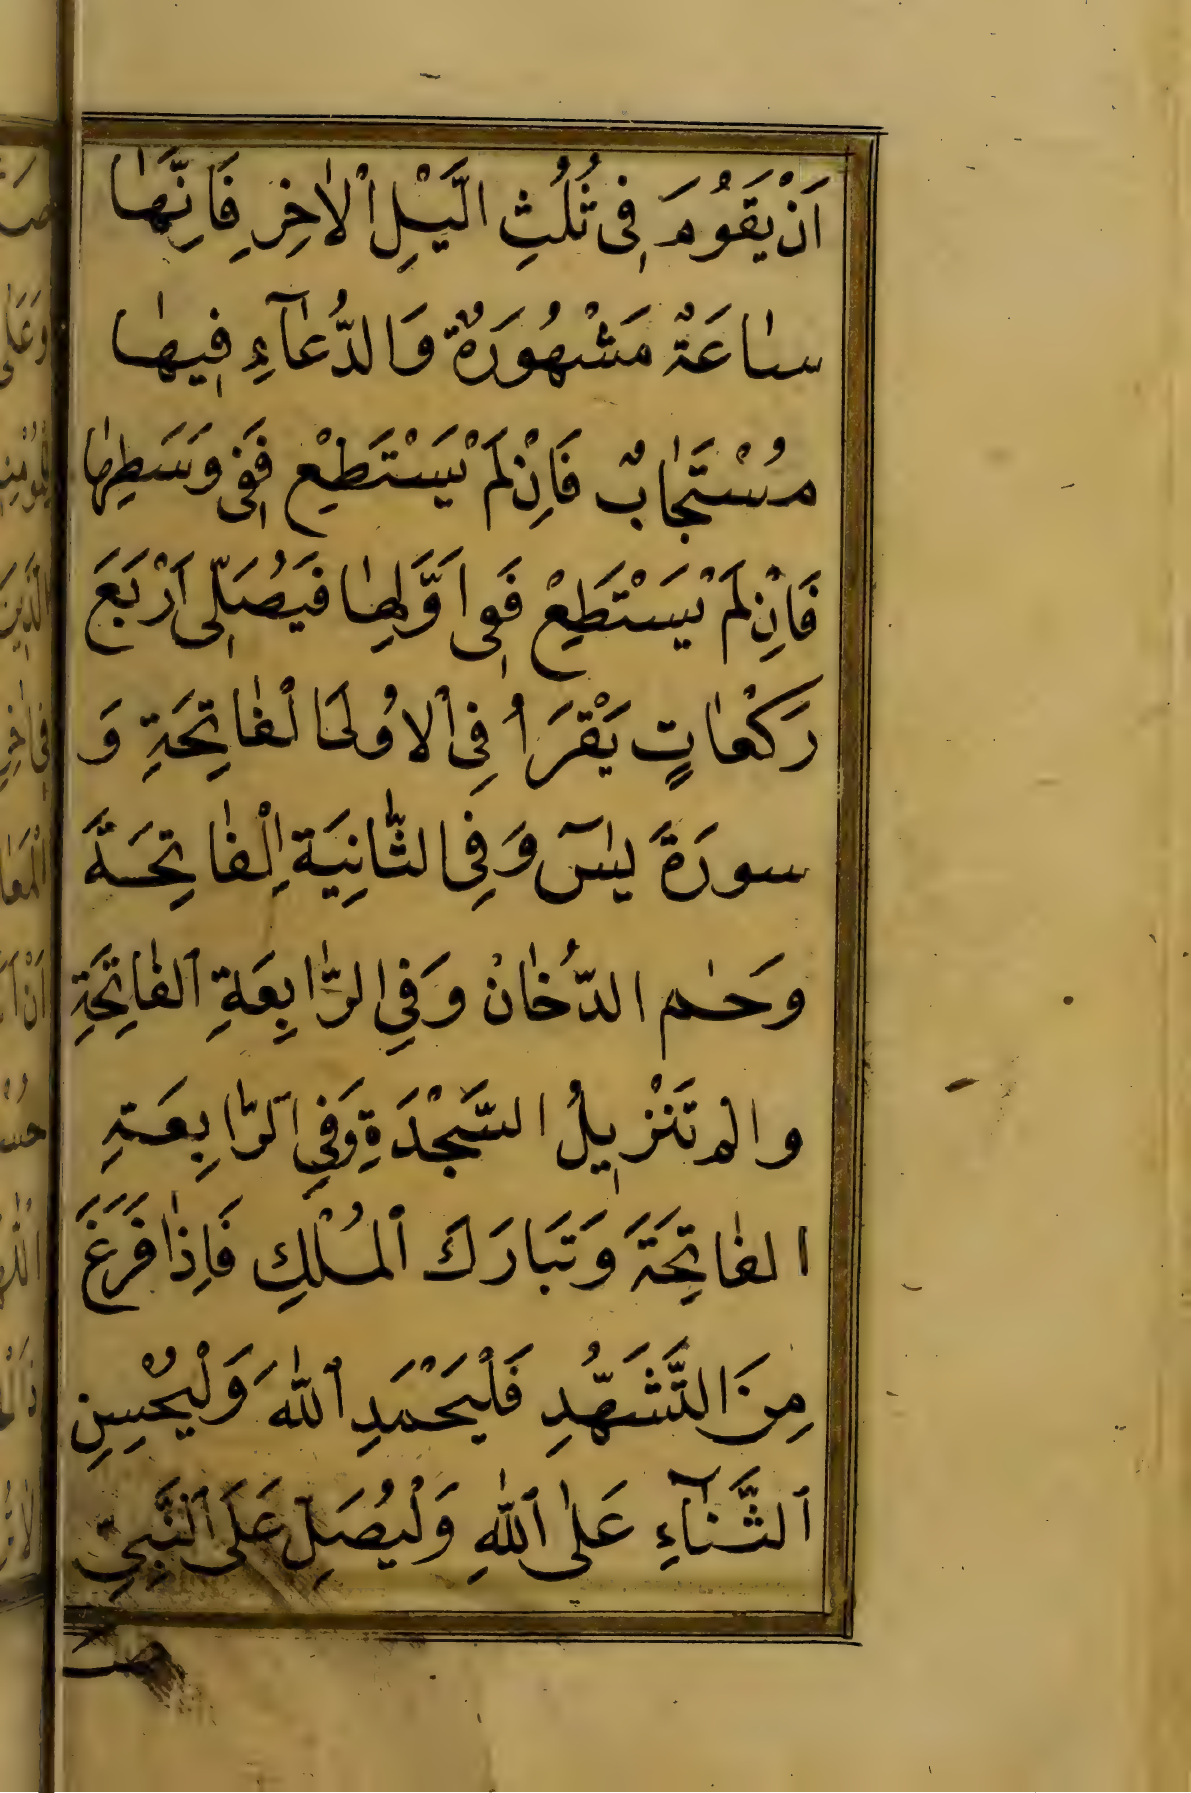 اَنْ يَقُومَ فِى ثُلُثِ الَّيْلِ الْاٰخِرِ فَاِنَّهٰا
سٰاعَةٌ مَشْهُورَةٌ وَالدُّعٰآءِ فِيهٰا
مُسْتَجٰابٌ فَاِنْ لَمْ يَسْتَطِعْ فَفِى وَسَطِهٰا
فَاِنْ لَمْ يَسْتَطِعْ فَفِى اَوَّلِهٰا فَيُصَلِّى اَرْبَعَ
رَكْعٰاتٍ يَقْرَاُ فِى الْاُولَى الْفٰاتِحَةِ وَ
سورَةَ يٰسٓ وَفِى الثّٰانِيَةِ الْفٰاتِحَةَ
وَحٰم الدُّخٰانْ وَفِى الرّٰابِعَةِ الفٰاتِحَةِ
والم تَنْزِيلُ السَّجْدَةِ وَفِى الرّٰابِعَةِ
الفٰاتِحَةَ وَتَبَارَكَ الْمُلْكِ فَاِذٰا فَرَغَ
مِنَ التَّشَهُّدِ فَلْيَحْمَدِ اللّٰهَ وَلْيُحْسِنِ
الثَّنٰآءِ عَلٰى اللّٰهِ وَلْيُصَلِّ عَلَى النَّبِىِّ